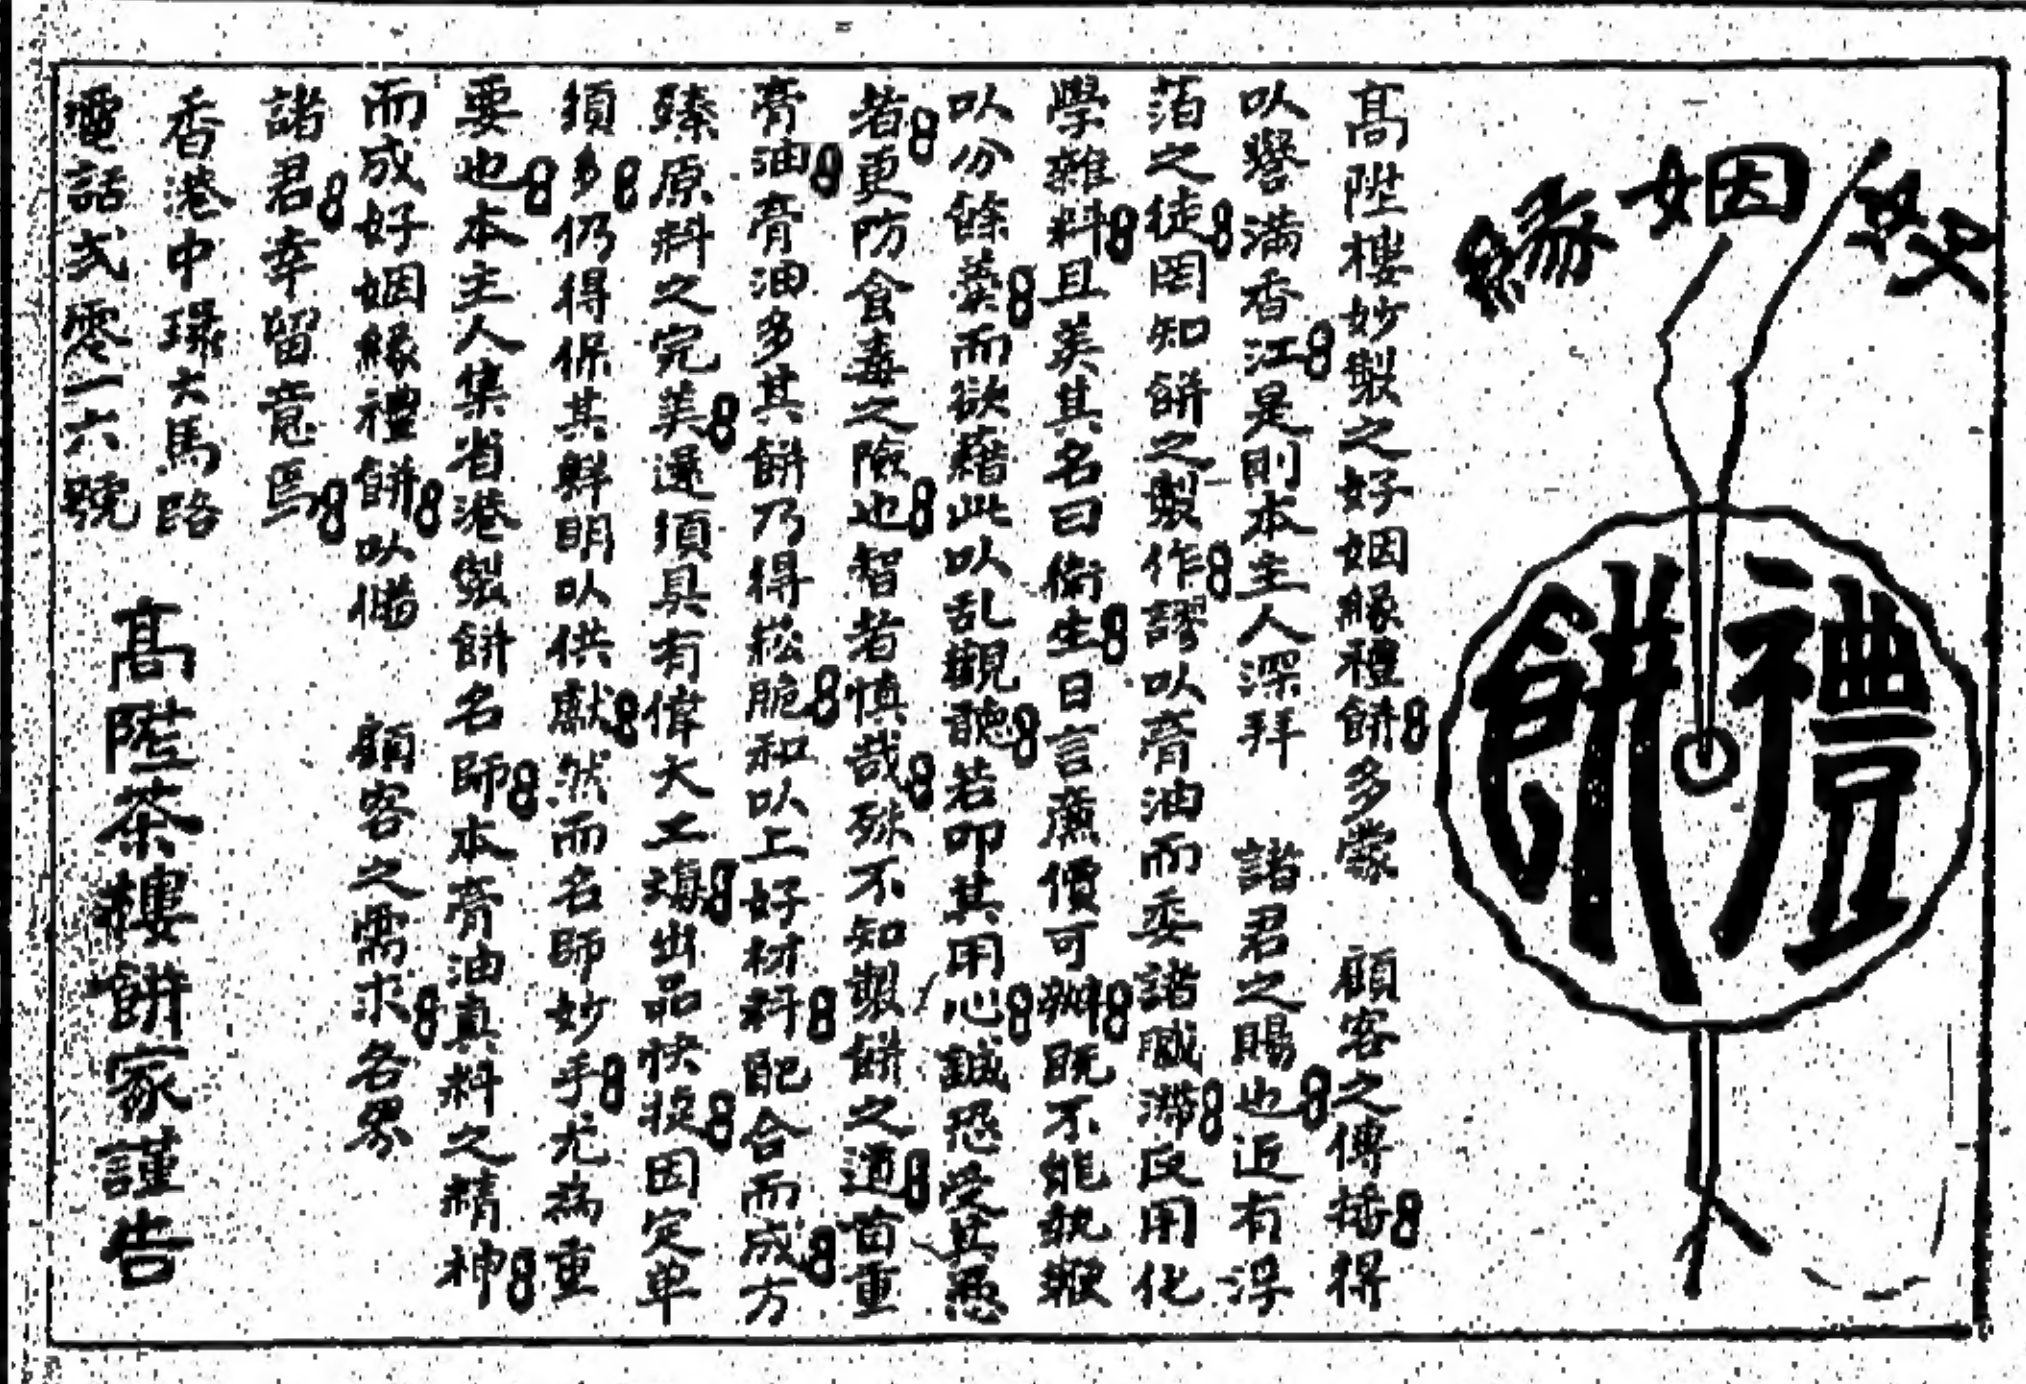 好姻緣
禮餅
髙陞樓妙製之好姻緣禮餅多蒙 顧客之傳播得
以譽滿香江是則本主人深拜 諸君之賜也近有浮
萡之徒罔知餅之製作謬以膏油而委諸膩滯反用化
學雜料且美其名曰衛生日言廉價可辦既不能執鞭
以分餘羹而欲藉此以乱觀聽若叩其用心誠恐受其愚
者更防食毒之險也智者慎哉殊不知製餅之道首重
膏油膏油多其餅乃得崧脆和以上好材料配合而成方
臻原料之完美還須具有偉大工塲出品快捷因定单
須多仍得保其鮮明以供獻然而名師妙手尤為重
要也本主人集省港製餅名師本膏油真料之精神
而成好姻緣禮餅以備 顧客之需求各界
諸君幸留意焉
香港中環大馬路
電話弍零一六號
髙陞茶樓餅家謹告